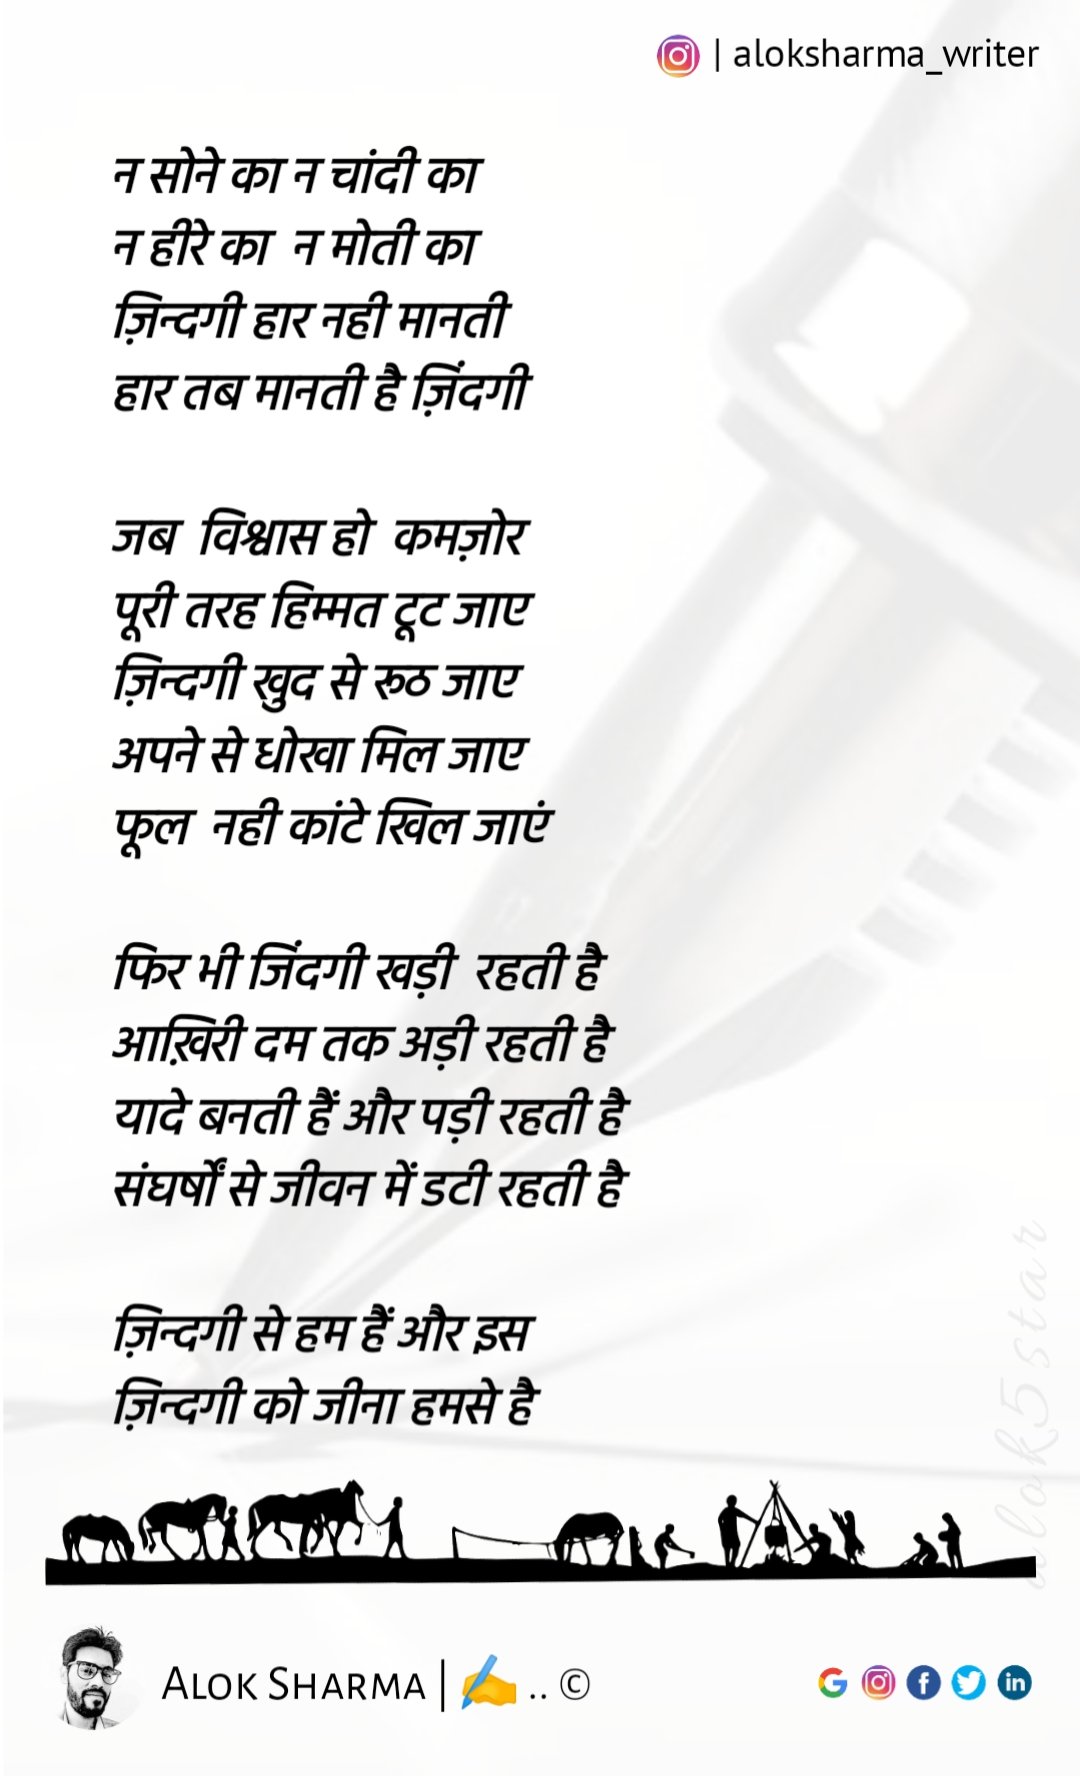 | aloksharma_writer
न सोने का न चांदी का
न हीरे का न मोती का
ज़िन्दगी हार नही मानती
हार तब मानती है ज़िंदगी
जब विश्वास हो कमज़ोर
पूरी तरह हिम्मत टूट जाए
ज़िन्दगी खुद से रूठ जाए
अपने से धोखा मिल जाए
फूल नही कांटे खिल जाएं
फिर भी जिंदगी खड़ी रहती है
आख़िरी दम तक अड़ी रहती है
यादे बनती हैं और पड़ी रहती है
संघर्षों से जीवन में डटी रहती है
ज़िन्दगी से हम हैं और इस
ज़िन्दगी को जीना हमसे है
alok5star
ALOK SHARMA | ✍️ .. ©